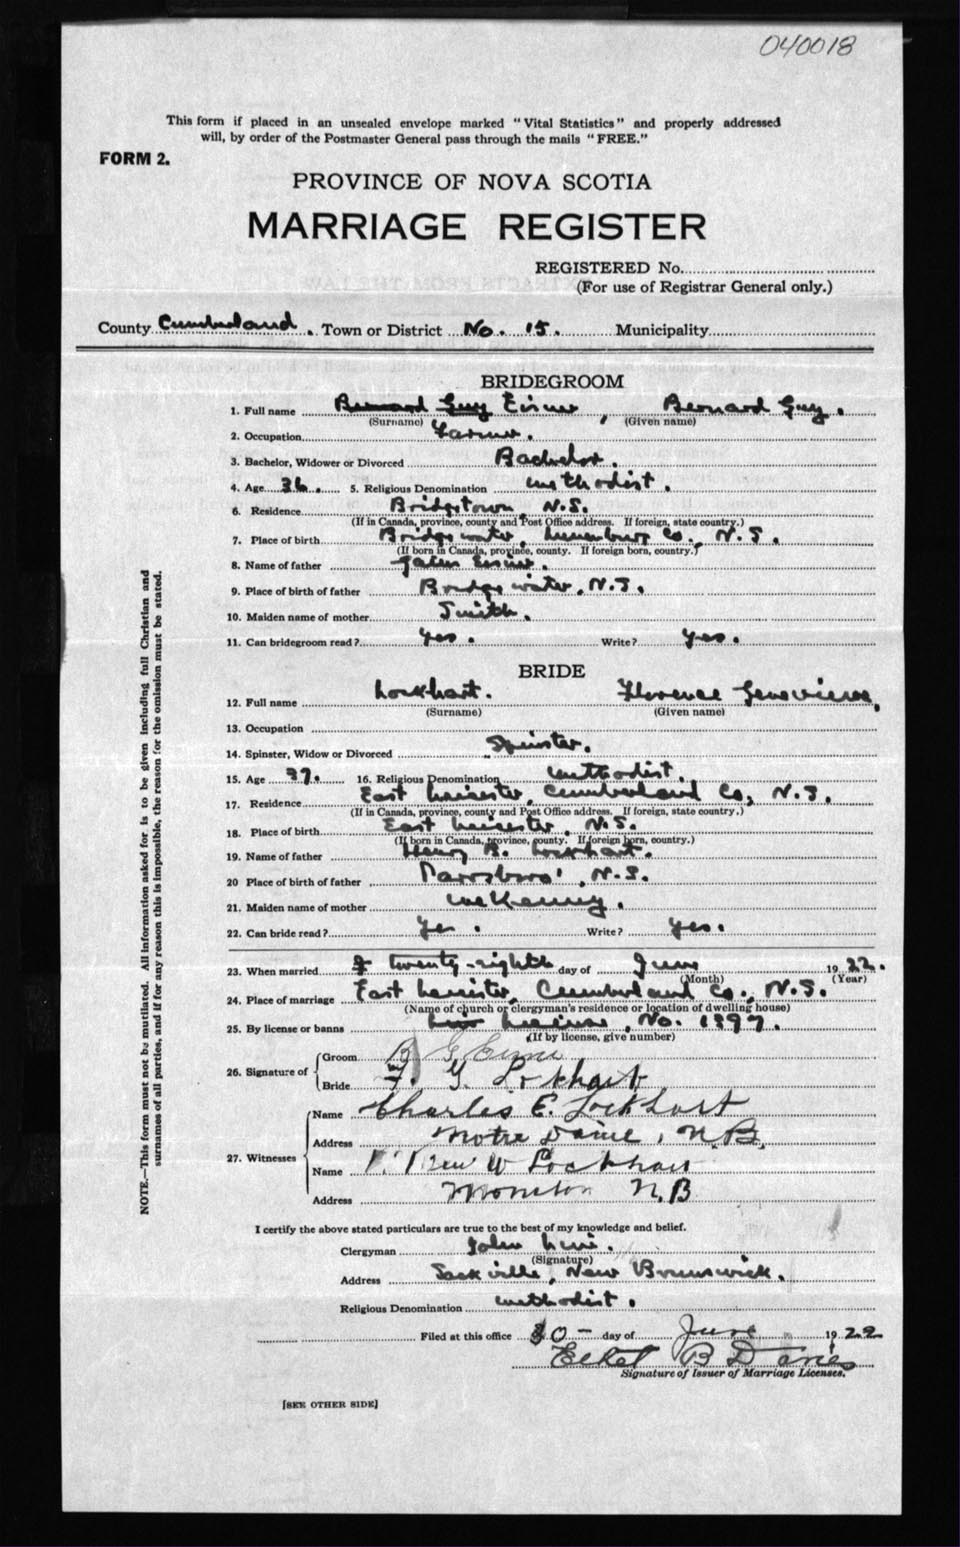 040018
This form if placed in an unsealed envelope marked "Vital Statistics" and properly addressed
will, by order of the Postmaster General pass through the mails "FREE."
FORM 2.
PROVINCE OF NOVA SCOTIA
MARRIAGE REGISTER
REGISTERED No.
(For use of Registrar General only.)
County Cumberland. Town or District No. 15. Municipality
BRIDEGROOM
1. Full name Bernard Guy Eisner, Bernard Guy.
(Surname) (Given name)
2. Occupation Farmer.
3. Bachelor, Widower or Divorced Bachelor.
4. Age 36. 5. Religious Denomination Methodist.
6. Residence Bridgetown, N.S.
(If in Canada, province, county and Post Office address. If foreign, state country.)
7. Place of birth Bridgewater, Lunenburg Co., N.S.
(If born in Canada, province, county. If foreign born, country.)
8. Name of father Eisner.
9. Place of birth of father Bridgewater, N.S.
10. Maiden name of mother Smith.
11. Can bridegroom read? Yes. Write? Yes.
BRIDE
12. Full name Lockhart. Florence Genevieve,
(Surname) (Given name)
13. Occupation
14. Spinster, Widow or Divorced Spinster.
15. Age 37. 16. Religious Denomination Methodist.
17. Residence East Leicester, Cumberland Co, N.S.
(If in Canada, province, county and Post Office address. If foreign, state country.)
18. Place of birth East Leicester, N.S.
(If born in Canada, province, county. If foreign born, country.)
19. Name of father Henry B. Lockhart.
20 Place of birth of father Parrsboro', N.S.
21. Maiden name of mother McKenny.
22. Can bride read? Yes. Write? Yes.
23. When married twenty-eighth day of June 1922.
(Month) (Year)
24. Place of marriage East Leicester, Cumberland Co., N.S.
(Name of church or clergyman's residence or location of dwelling house)
25. By license or banns License, No. 1397.
(If by license, give number)
26. Signature of
Groom B G Eisner
Bride F. G. Lockhart
27. Witnesses
Name Charles E. Lockhart
Address Notre Dame, N.B.
Name W Lockhart
Address Moncton N.B
I certify the above stated particulars are true to the best of my knowledge and belief.
Clergyman John
(Signature)
Address Sackville, New Brunswick.
Religious Denomination Methodist.
Filed at this office 30 - day of June 1922
Ethel B Davies
Signature of Issuer of Marriage Licenses.
[SEE OTHER SIDE]
NOTE.—This form must not be mutilated. All information asked for is to be given including full Christian and
surnames of all parties, and if for any reason this is impossible, the reason for the omission must be stated.